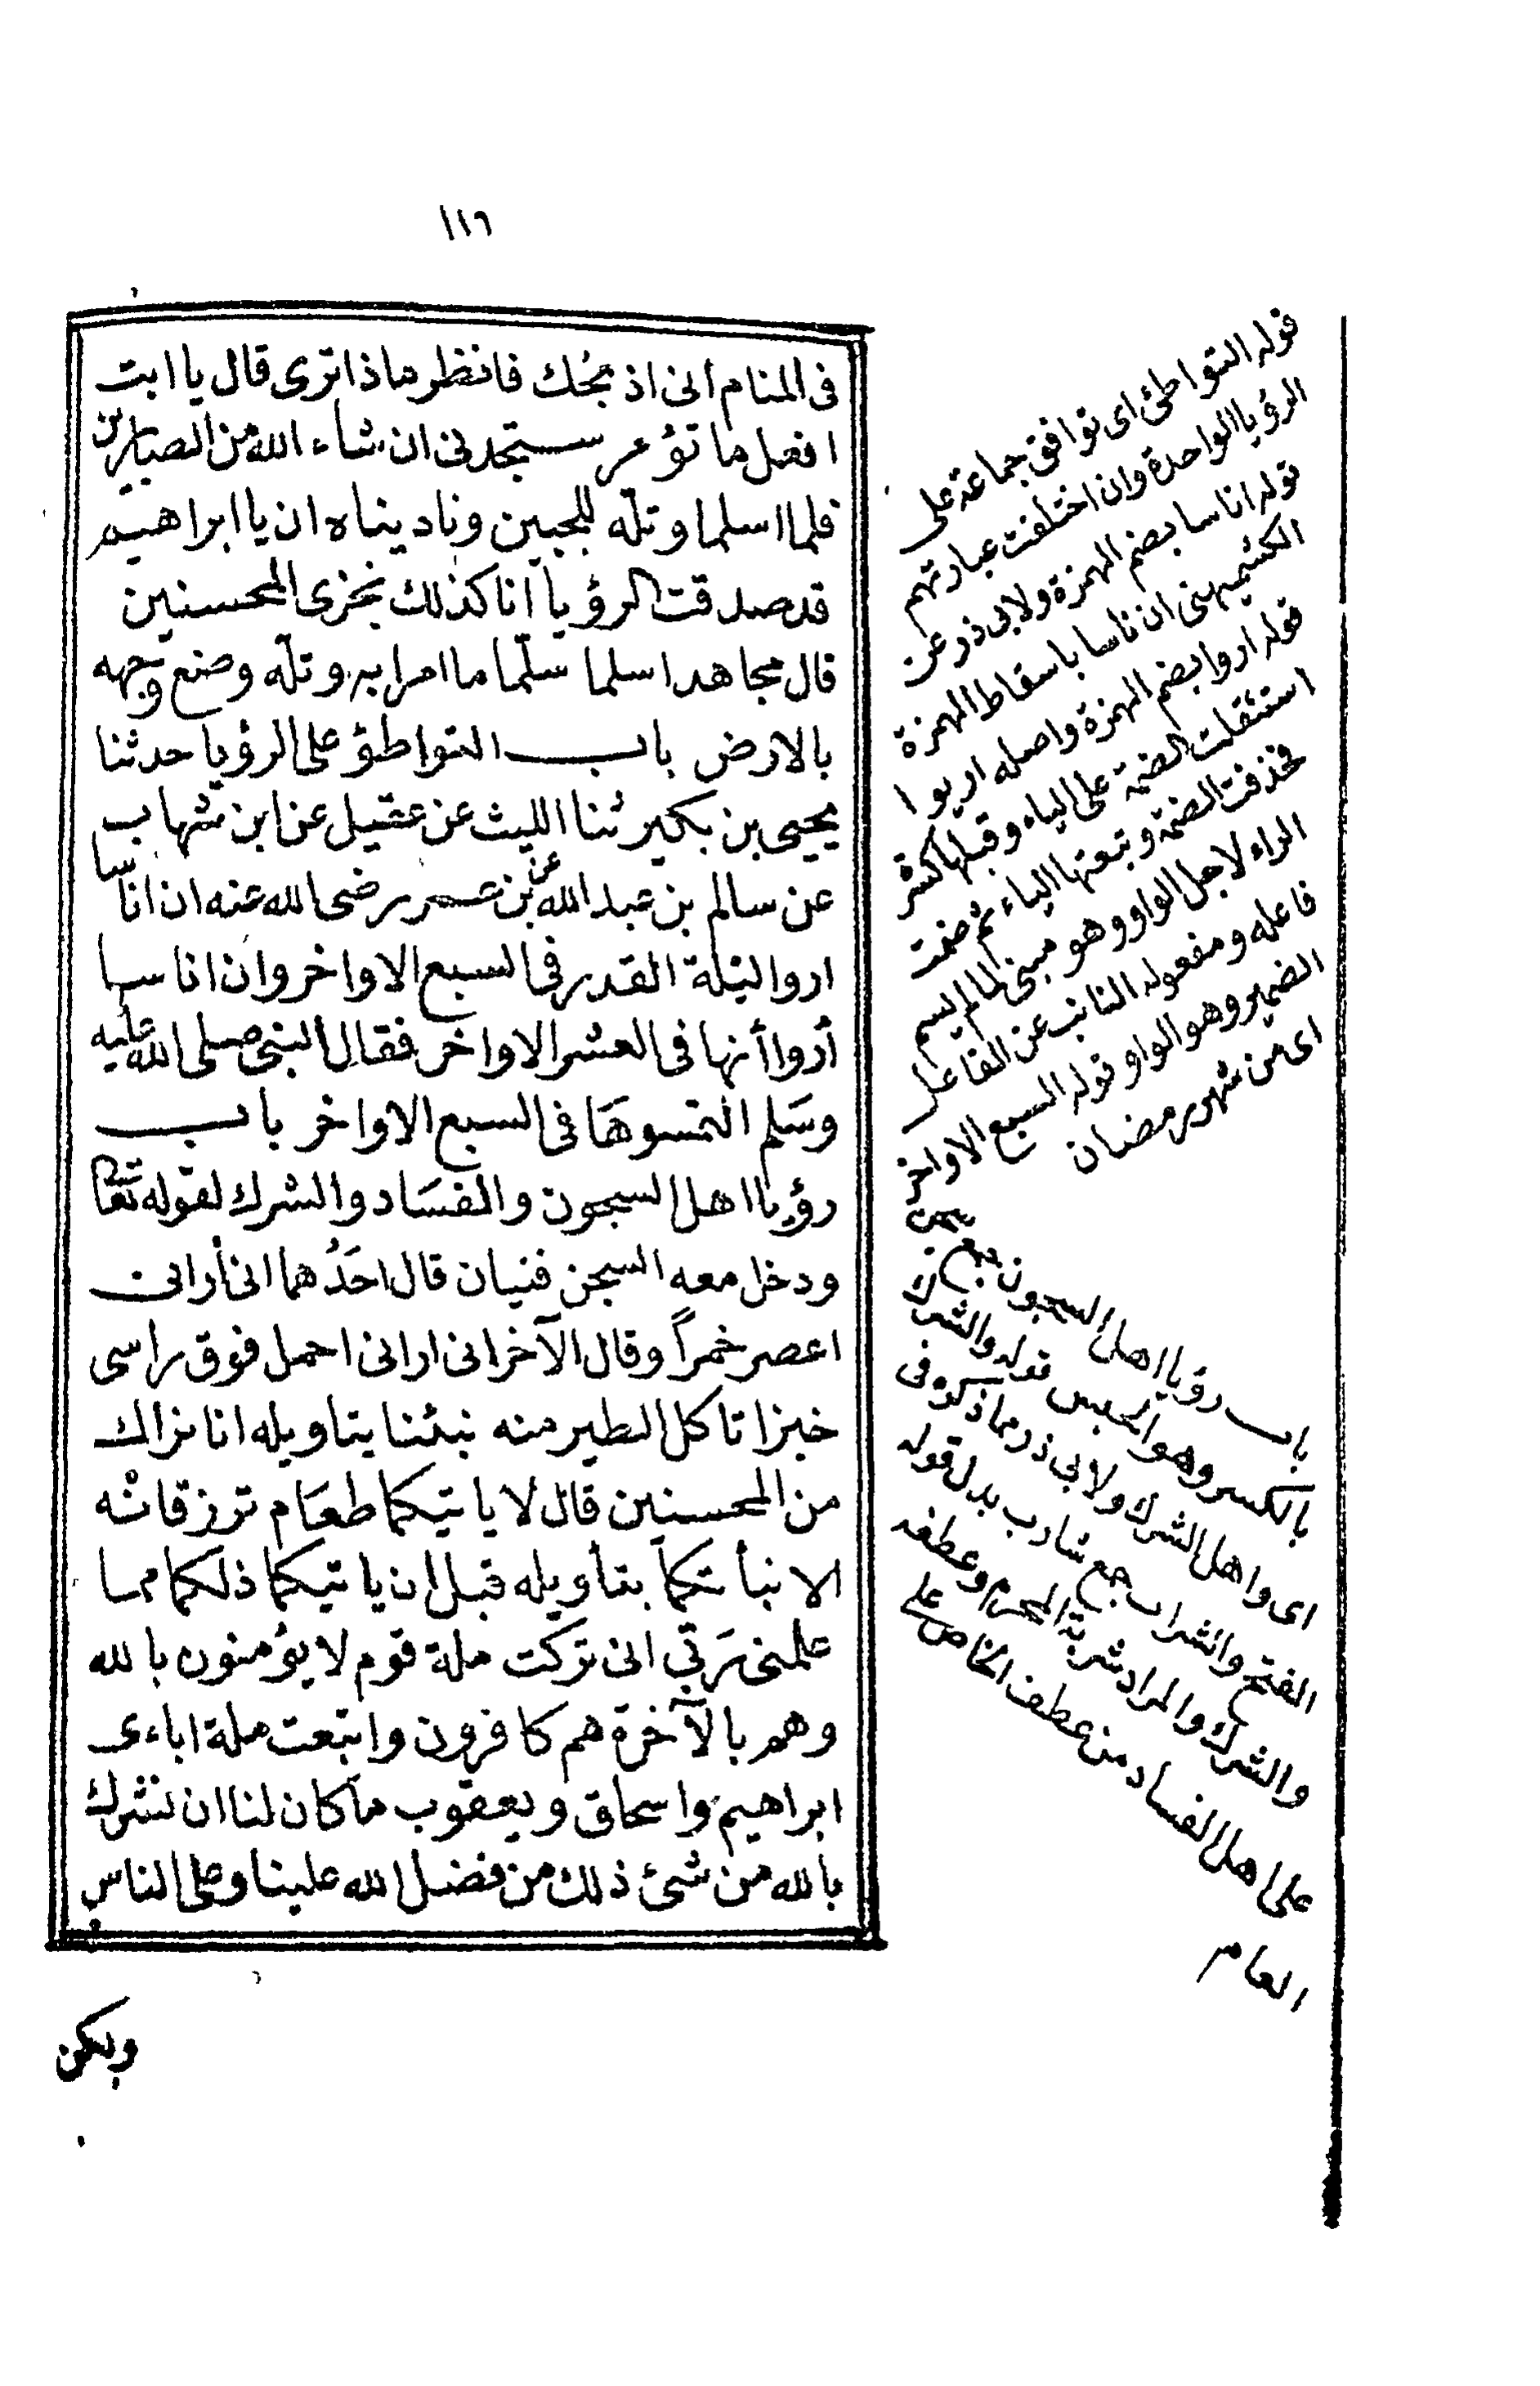 ١١٦
فى المنام انى اذبحُك فانظر ماذا ترى قال يا ابت
افعل ما تؤمر ستجدنى ان شاء الله من الصابرين
فلما اسلما وتلّه للجبين وناديناه ان يا ابراهيم
قد صدقت الرؤيا انا كذلك نجزى المحسنين
قال مجاهد اسلما سلّما ما امرا به وتلّه وضع وجهه
بالارض باب التواطؤ على الرؤيا حدثنا
يحيى بن بكير ثنا الليث عن عقيل عن ابن شهاب
عن سالم بن عبد الله عن بن عمر رضى الله عنه ان اناسا
اروا ليلة القدر فى السبع الاواخر وان اناسا
أروا أنها فى العشر الاواخر فقال النبى صلى الله عليه
وسَلم التمسوهَا فى السبع الاواخر باب
رؤيا اهل السجون والفسَاد والشرك لقوله تعَا
ودخل معه السجن فتيان قال احَدُهما انى أرانى
اعصر خمراً وقال الآخر انى ارانى احمل فوق راسى
خبزا تاكل الطير منه نبئنا بتاويله انا نراك
من المحسنين قال لا ياتيكما طعَام ترزقانه
الا نبأتكما بتأويله قبل ان ياتيكما ذلكما مما
علمنى رَبّي انى تركت ملة قوم لا يؤمنون بالله
وهم بالآخرة هم كافرون واتبعت ملة اباءى
ابراهيم واسحاق ويعقوب ما كان لنا ان نشرك
بالله من شئ ذلك من فضل الله علينا وعلى الناس
ولكن
قوله التواطئ اى توافق جماعة على
الرؤيا الواحدة وان اختلفت عبارتهم
قوله اناسا بضم الهمزة ولابى ذر عن
الكشميهنى ان ناسا باسقاط الهمزة
قوله اروا بضم الهمزة واصله اريوا
استثقلت الضمة على الياء وقبلها كسر
فحذفت الضمة وتبعتها الياء ثم ضمت
الراء لاجل الواو وهو مبنى لما لم يسم
فاعله ومفعوله النائب عن الفاعل
الضمير وهو الواو قوله السبع الاواخر
اى من شهر رمضان
باب رؤيا اهل السجون جمع سجن
بالكسر وهو الحبس قوله والشرك
اى واهل الشرك ولابى ذر مما ذكره فى
الفتح والشراب جمع شارب بدل قوله
والشرك والمراد شربة المحرم وعطفه
على اهل الفساد من عطف الخاص على
العام